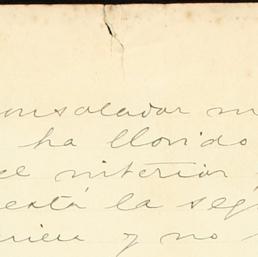 consolador
ha llovido
el interior
está la seg
y no